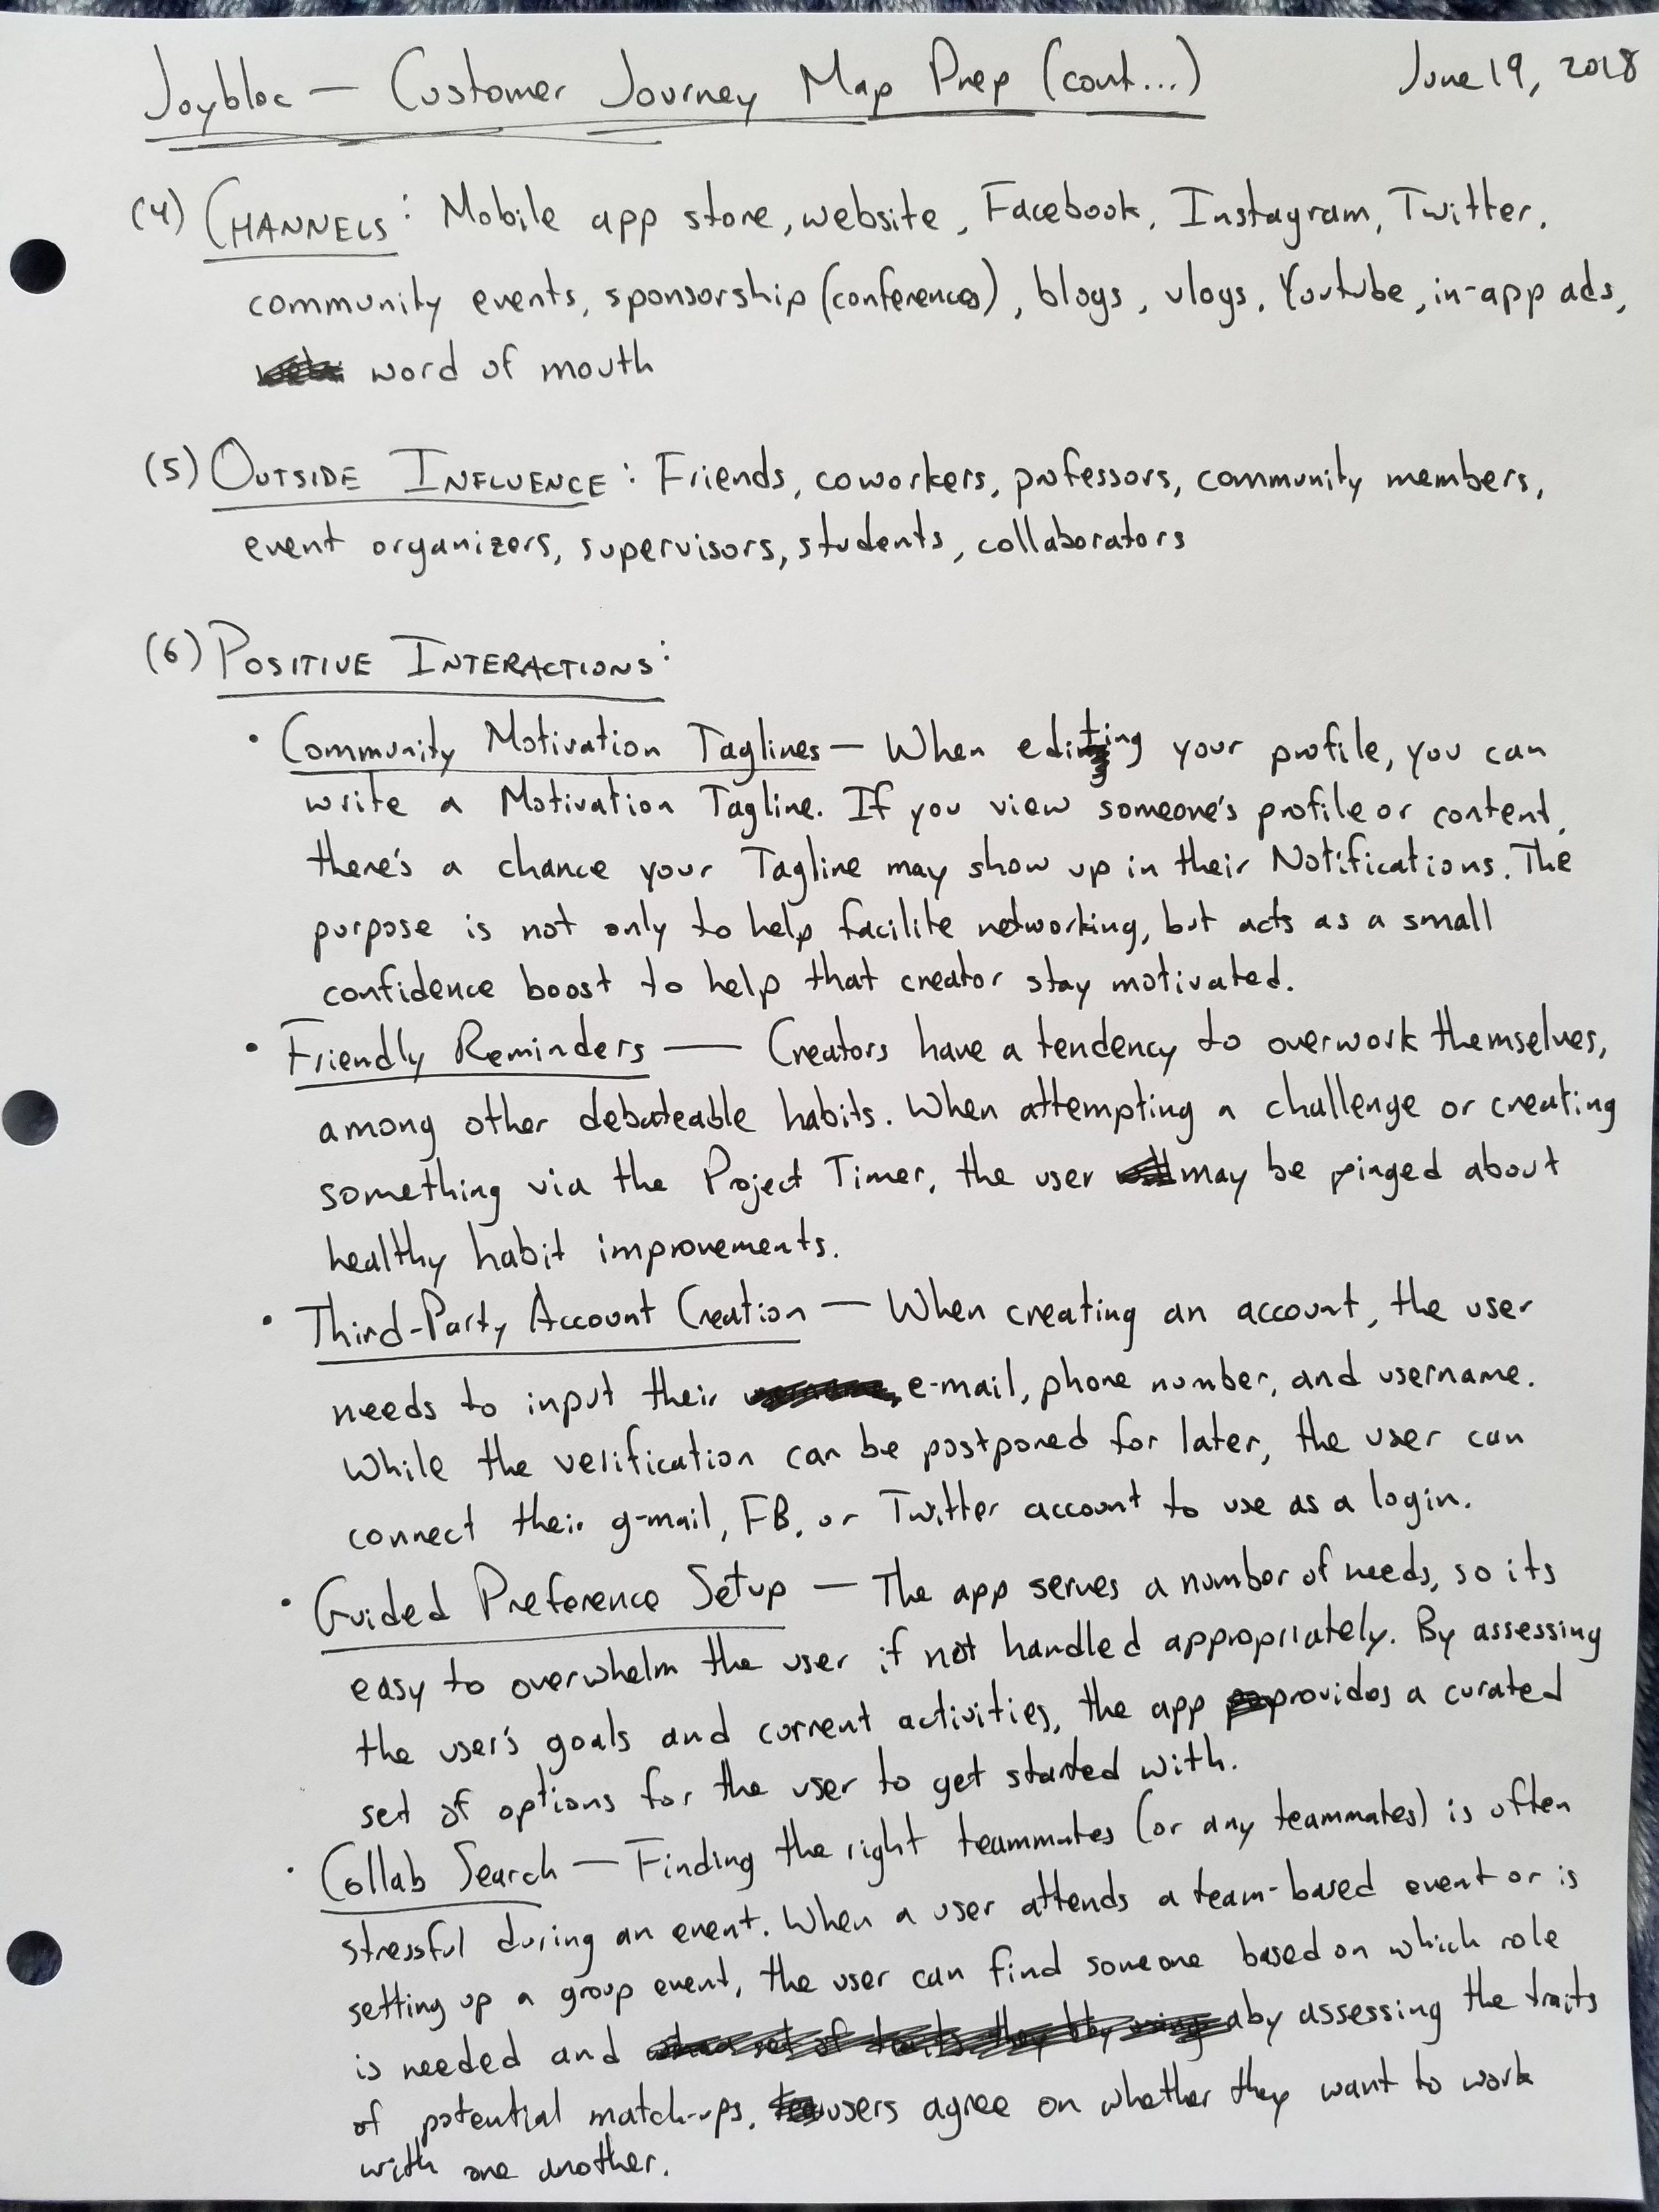 Joybloc — Customer Journey Map Prep (cont...)
June 19, 2018
(4) CHANNELS: Mobile app store, website, Facebook, Instagram, Twitter,
community events, sponsorship (conferences), blogs, vlogs, Youtube, in-app ads,
word of mouth
(5) OUTSIDE INFLUENCE: Friends, coworkers, professors, community members,
event organizers, supervisors, students, collaborators
(6) POSITIVE INTERACTIONS:
• Community Motivation Taglines — When editing your profile, you can
write a Motivation Tagline. If you view someone's profile or content,
there's a chance your Tagline may show up in their Notifications. The
purpose is not only to help facilite networking, but acts as a small
confidence boost to help that creator stay motivated.
• Friendly Reminders — Creators have a tendency to overwork themselves,
among other debateable habits. When attempting a challenge or creating
something via the Project Timer, the user may be pinged about
healthy habit improvements.
• Third-Party Account Creation — When creating an account, the user
needs to input their e-mail, phone number, and username.
While the verification can be postponed for later, the user can
connect their g-mail, FB, or Twitter account to use as a login.
• Guided Preference Setup — The app serves a number of needs, so its
easy to overwhelm the user if not handled appropriately. By assessing
the user's goals and current activities, the app provides a curated
set of options for the user to get started with.
• Collab Search — Finding the right teammates (or any teammates) is often
stressful during an event. When a user attends a team-based event or is
setting up a group event, the user can find someone based on which role
is needed and by assessing the traits
of potential match-ups, users agree on whether they want to work
with one another.